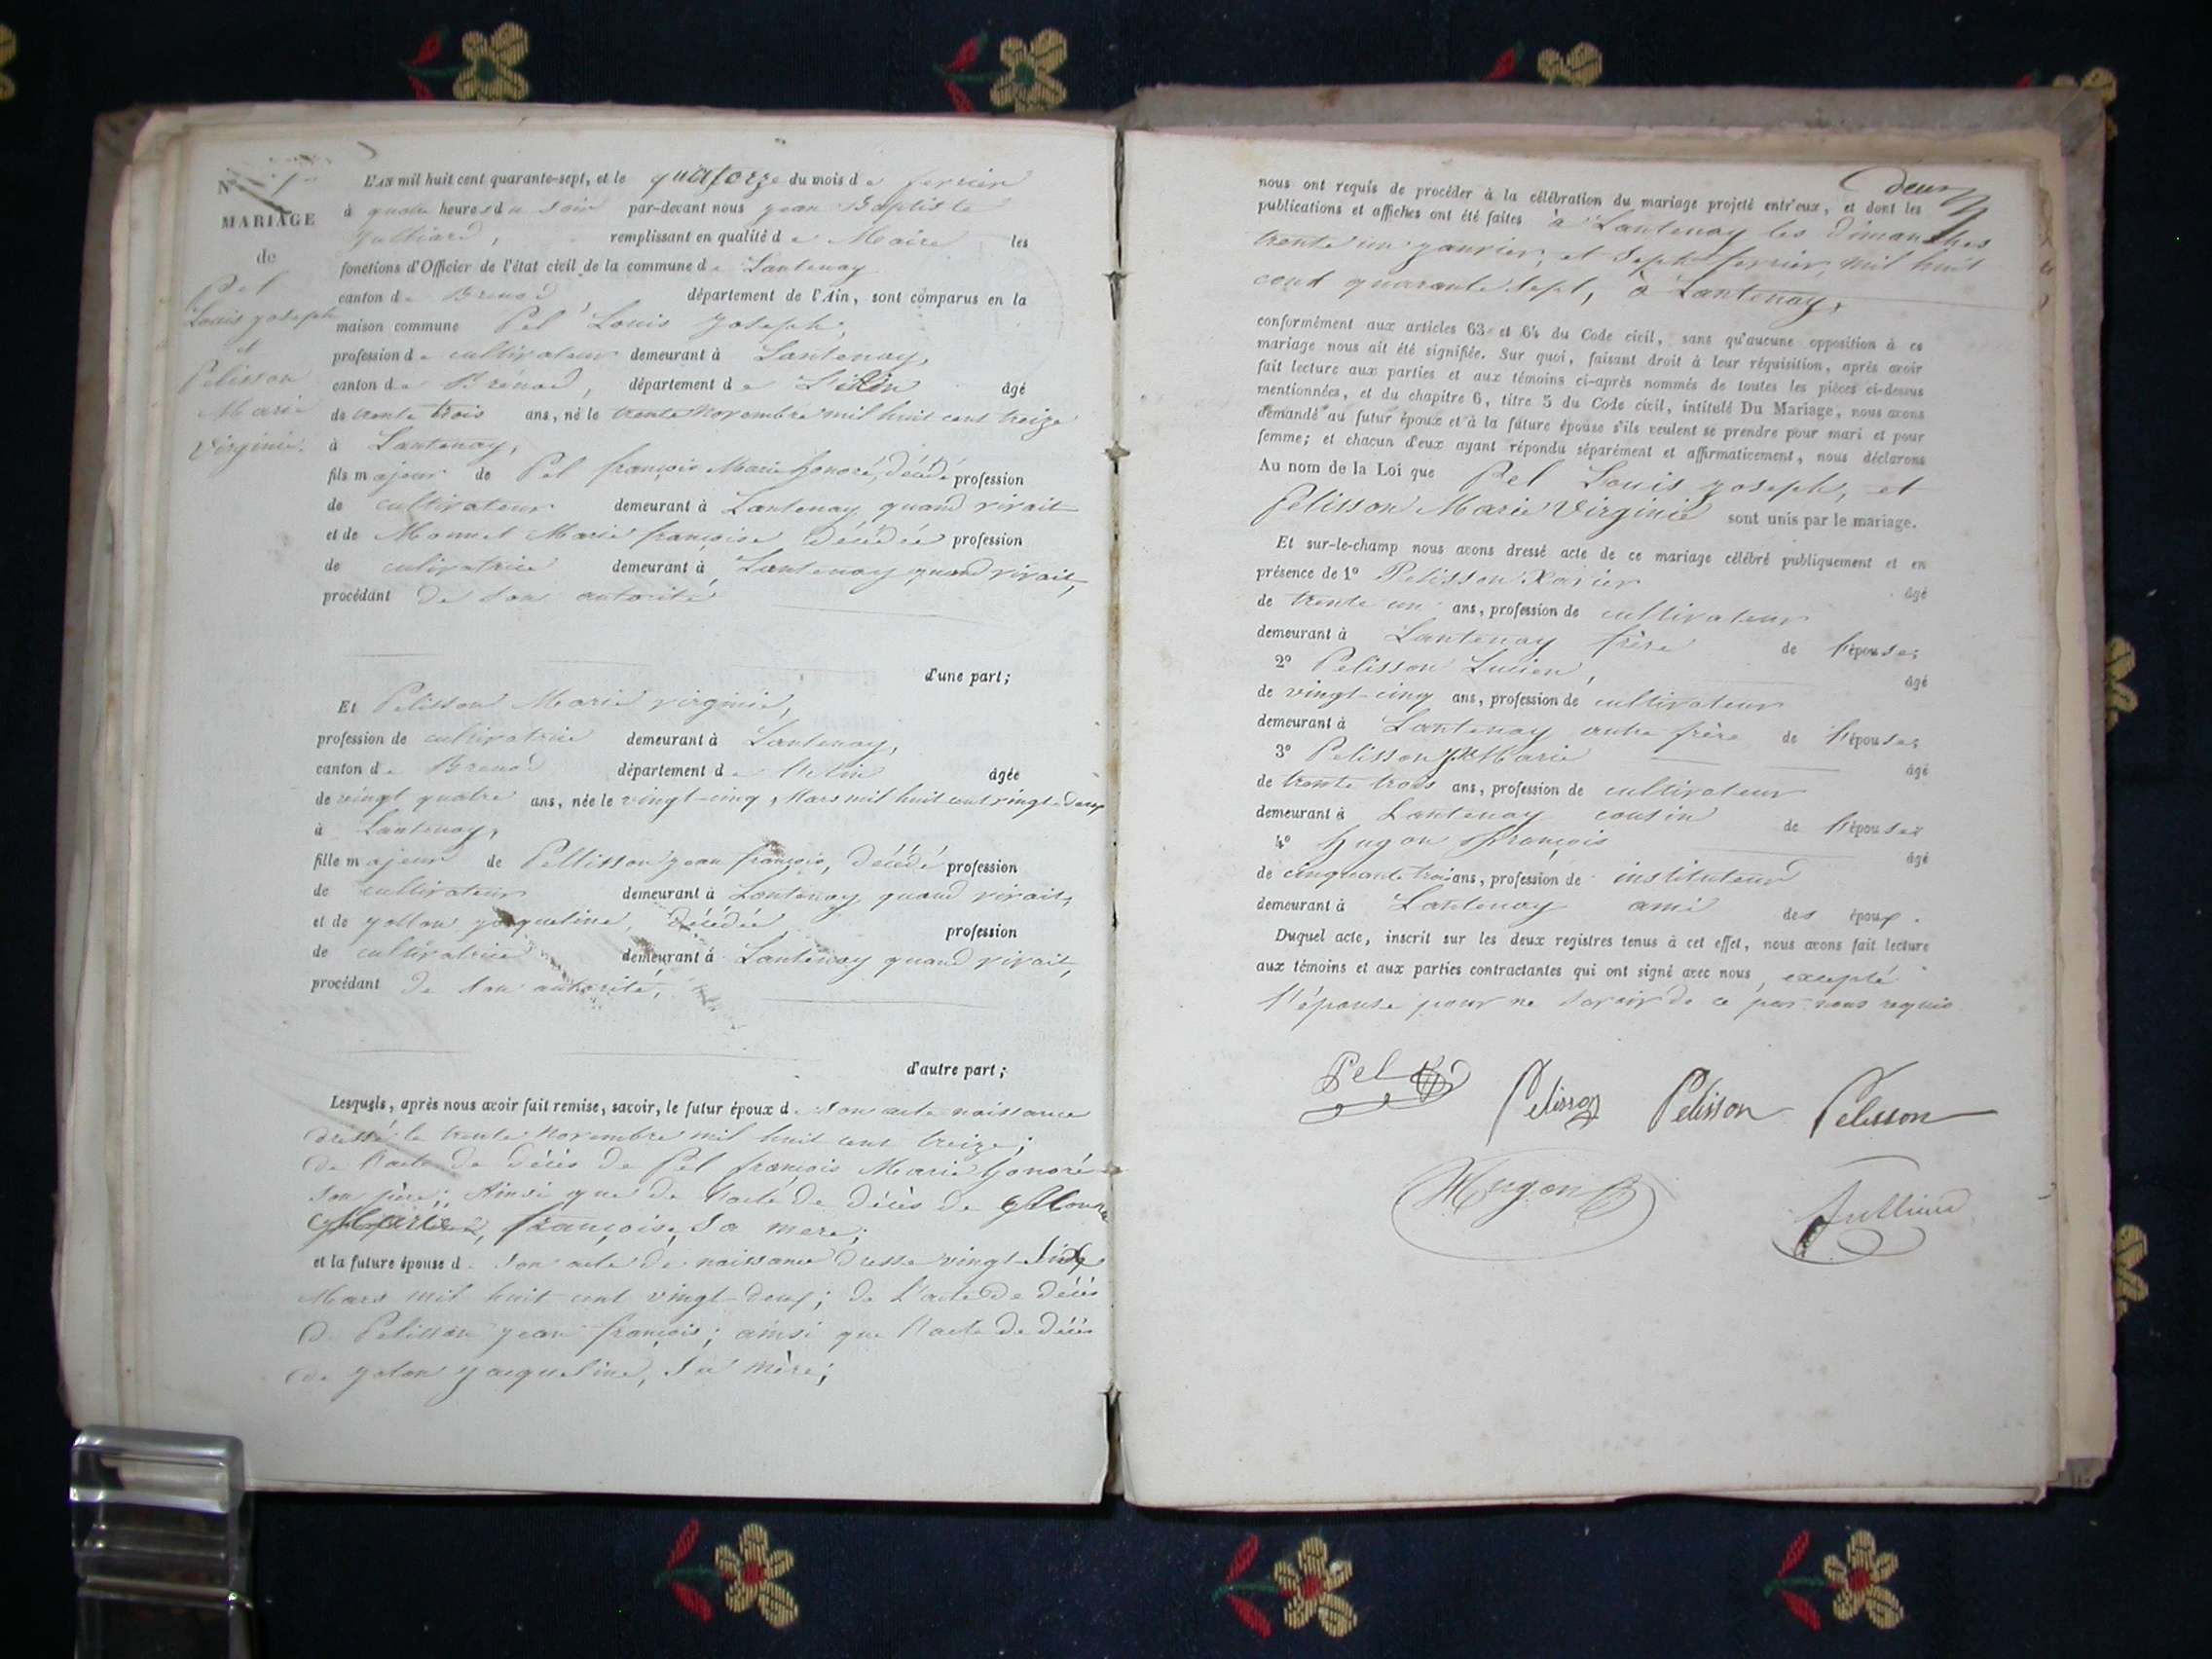 N° 1
MARIAGE
de
Pel
Louis Joseph
et
Pelisson
Marie
Virginie.
L'AN mil huit cent quarante-sept, et le quatorze du mois de fevrier
à quatre heures du soir par-devant nous Jean Baptiste
Julliard, remplissant en qualité de Maire les
fonctions d'Officier de l'état civil de la commune de Lantenay
canton de Brenod département de l'Ain, sont comparus en la
maison commune Pel Louis Joseph,
profession de cultivateur demeurant à Lantenay,
canton de Brénod, département de L'Ain âgé
de trente trois ans, né le trente Novembre mil huit cent treize
à Lantenay,
fils majeur de Pel françois Marie honoré, décédé profession
de cultivateur demeurant à Lantenay quand vivait
et de Monnet Marie françoise décédée profession
de cultivatrice demeurant à Lantenay quand vivait,
procédant de son autorité
d'une part;
Et Pelisson Marie virginie,
profession de cultivatrice demeurant à Lantenay,
canton de Brenod département de l'Ain âgée
de vingt quatre ans, née le vingt-cinq, Mars mil huit cent vingt-deux
à Lantenay,
fille majeur de Pellisson Jean françois, décédé profession
de cultivateur demeurant à Lantenay quand vivait,
et de Jollon Jacqueline, décédée profession
de cultivatrice demeurant à Lantenay quand vivait,
procédant de son autorité,
d'autre part;
Lesquels, après nous avoir fait remise, savoir, le futur époux d. son acte naissance
dressé le trente Novembre mil huit cent treize;
de l'acte de décès de Pel françois Marie honoré
son père; Ainsi que de l'acte de décès de
Marie, françoise, sa mere;
et la future épouse d. son acte de naissance dressé vingt-six
Mars mil huit cent vingt-deux; de l'acte de décès
de Pelisson Jean françois; ainsi que l'acte de décès
de Jolon Jacqueline, sa mère;
deux
nous ont requis de procéder à la célébration du mariage projeté entr'eux, et dont les
publications et affiches ont été faites à Lantenay les dimanches
trente un janvier, et sept fevrier, mil huit
cent quarante sept, à Lantenay,
conformément aux articles 63 et 64 du Code civil, sans qu'aucune opposition à ce
mariage nous ait été signifiée. Sur quoi, faisant droit à leur réquisition, après avoir
fait lecture aux parties et aux témoins ci-après nommés de toutes les pièces ci-dessus
mentionnées, et du chapitre 6, titre 5 du Code civil, intitulé Du Mariage, nous avons
demandé au futur époux et à la future épouse s'ils veulent se prendre pour mari et pour
femme; et chacun d'eux ayant répondu séparément et affirmativement, nous déclarons
Au nom de la Loi que Pel Louis Joseph, et
Pelisson Marie Virginie sont unis par le mariage.
Et sur-le-champ nous avons dressé acte de ce mariage célébré publiquement et en
présence de 1° Pelisson Xavier âgé
de trente un ans, profession de cultivateur
demeurant à Lantenay frère de l'épouse;
2° Pelisson Lucien, âgé
de vingt-cinq ans, profession de cultivateur
demeurant à Lantenay autre frère de l'épouse;
3° Pelisson Marie âgé
de trente trois ans, profession de cultivateur
demeurant à Lantenay cousin de l'épouse;
4° hugon François âgé
de cinquante trois ans, profession de instituteur
demeurant à Lantenay ami des époux.
Duquel acte, inscrit sur les deux registres tenus à cet effet, nous avons fait lecture
aux témoins et aux parties contractantes qui ont signé avec nous, excepté
l'épouse pour ne savoir de ce par nous requis
Pel Pelisson Pelisson Pelisson
Hugon Julliard